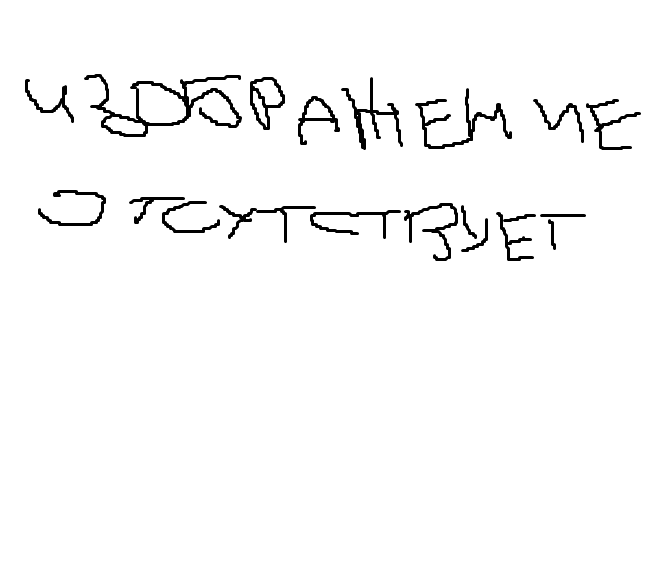 ИЗОБРАЖЕНИЕ
ОТСУТСТВУЕТ